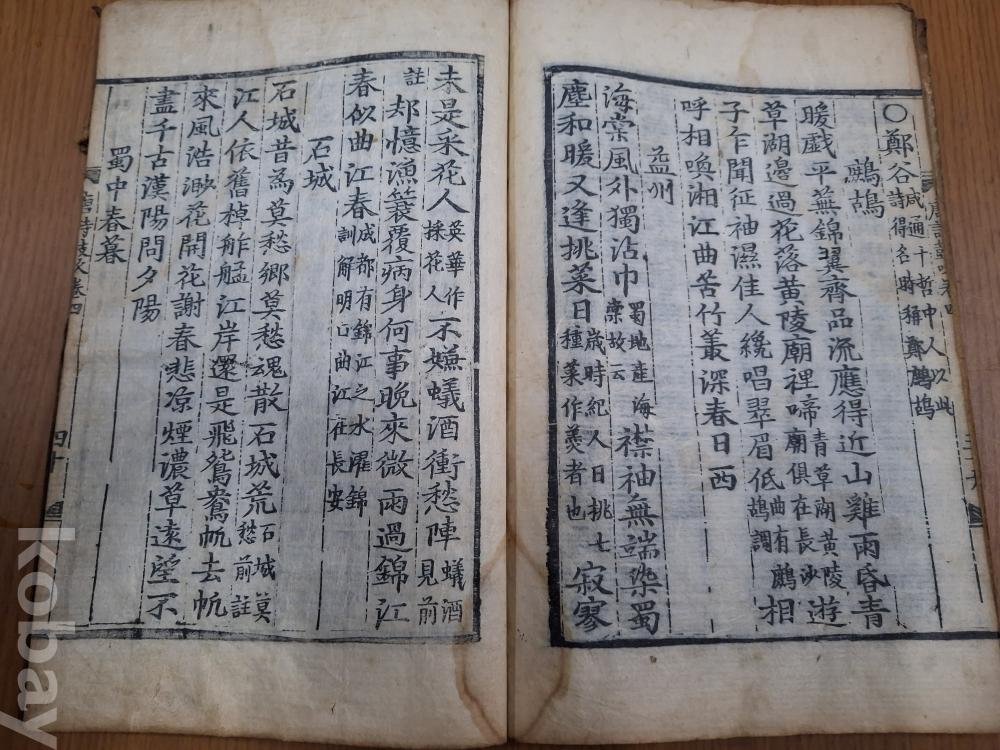 ○鄭谷咸通十哲中人以此
詩得名時稱鄭鷓鴣
鷓鴣
暖戱平蕪錦翼齊品流應得近山雞雨昏青
草湖邊過花落黄陵廟裡啼青草湖黄陵
廟俱在長沙遊
子乍聞征袖濕佳人纔唱翠眉低曲有鷓
鴣調相
呼相喚湘江曲苦竹叢深春日西
益州
海棠風外獨沾巾蜀地產海
棠故云襟袖無端染蜀
塵和暖又逢挑菜日歲時紀人日挑七
種菜作羹者也寂寥
未是采花人英華作
採花人不嫌蟻酒衝愁陣蟻酒
見前
註䢴憶漁簑覆病身何事晩來微雨過錦江
春似曲江春成都有錦江之水濯錦
訓解明曲江在長安
石城
石城昔爲莫愁鄉莫愁魂散石城荒石城莫
愁前註
江人依舊棹舴艋江岸還是飛鴛鴦帆去帆
來風浩渺花開花謝春悲凉煙濃草遠望不
盡千古漢陽問夕陽
蜀中春暮
卷四
四十
kobay